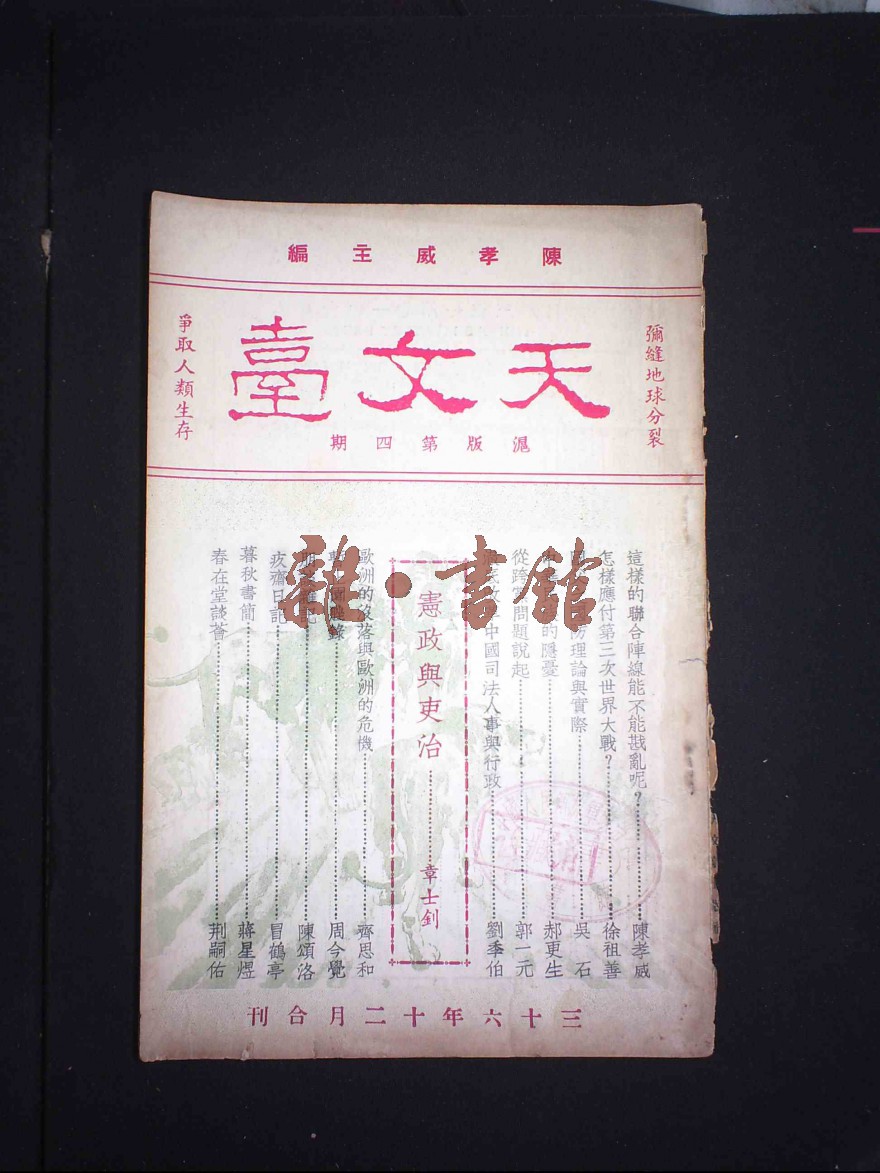 陳孝威主編
彌縫地球分裂
天文臺
爭取人類生存
滬版第四期
這樣的聯合陣線能不能戡亂呢？……陳孝威
怎樣應付第三次世界大戰？……徐祖善
防理論與實際……吳石
的隱憂……郝更生
從跨 問題說起……郭一元
中國司法人事與行政……劉季伯
憲政與吏治……章士釗
歐洲的沒落與歐洲的危機……齊思和
錄……周今覺
……陳頌洛
疚齋日記……冒鶴亭
暮秋書簡……蔣星煜
春在堂談薈……荆嗣佑
三十六年十二月合刊
雜·書館